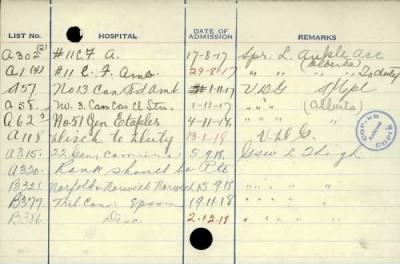 LIST NO. HOSPITAL DATE OF ADMISSION REMARKS
A302 (2) #11 C.F.A. 17-8-17 Spr. L. Ankle Acc
(Alberta)
A1 (4) #11 C.F. Amb. 29-8-17 " " " " To duty
S57 No 13 Can Fd Amb 1-11-17 V.D.G
A38 No. 3. Can Cas Cl Stn. 1-11-17 " " (Alberta)
A62 No 51 Gen Etaples 4-11-17 " " "
A118 Disch to Duty 13-1-18 V.D.G.
A315. 22 Gen. Camiers 5.9.18. Gsw L Thigh
A320. Rank should be Pte
B321. Norfolk & Norwich Norwich 15.9.18 " " "
B377 Mil Conv Epsom 19.11.18 " " "
B386 Disc. 2.12.18 " " "